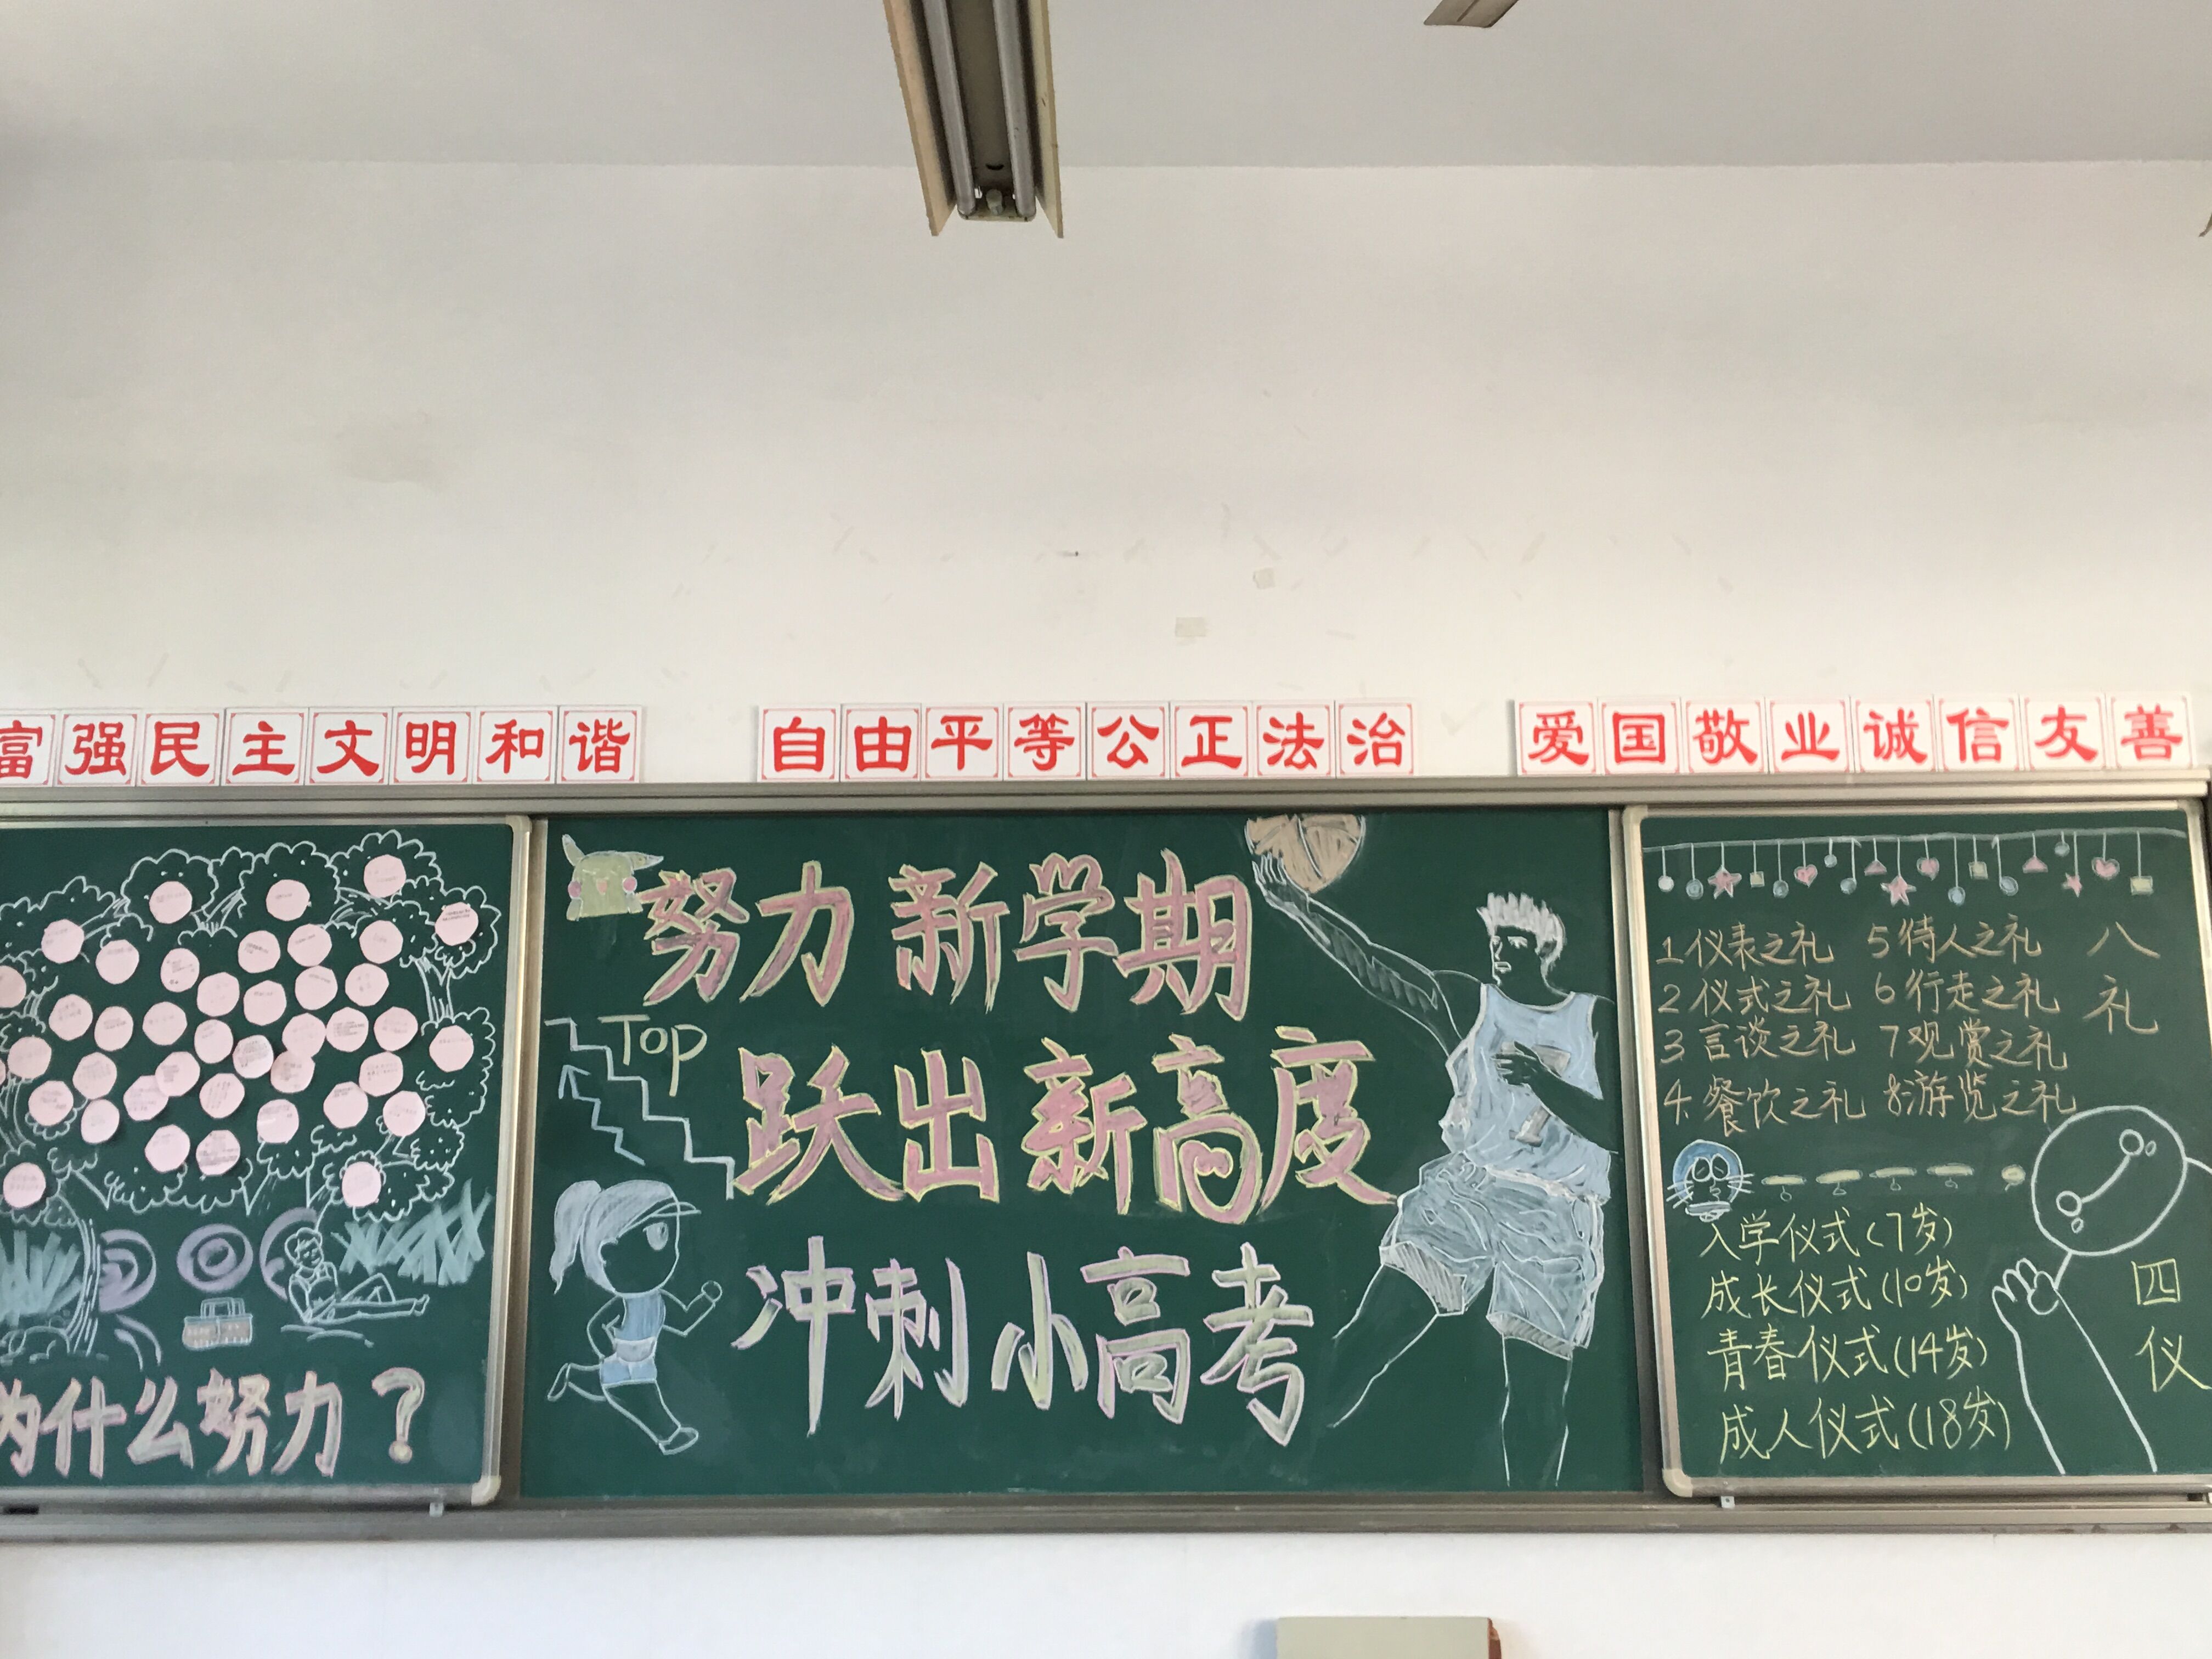 富强民主文明和谐 自由平等公正法治 爱国敬业诚信友善
为什么努力?
努力新学期
TOP
跃出新高度
冲刺小高考
八礼
1仪表之礼 5待人之礼
2仪式之礼 6行走之礼
3言谈之礼 7观赏之礼
4.餐饮之礼 8游览之礼
四仪
入学仪式(7岁)
成长仪式(10岁)
青春仪式(14岁)
成人仪式(18岁)